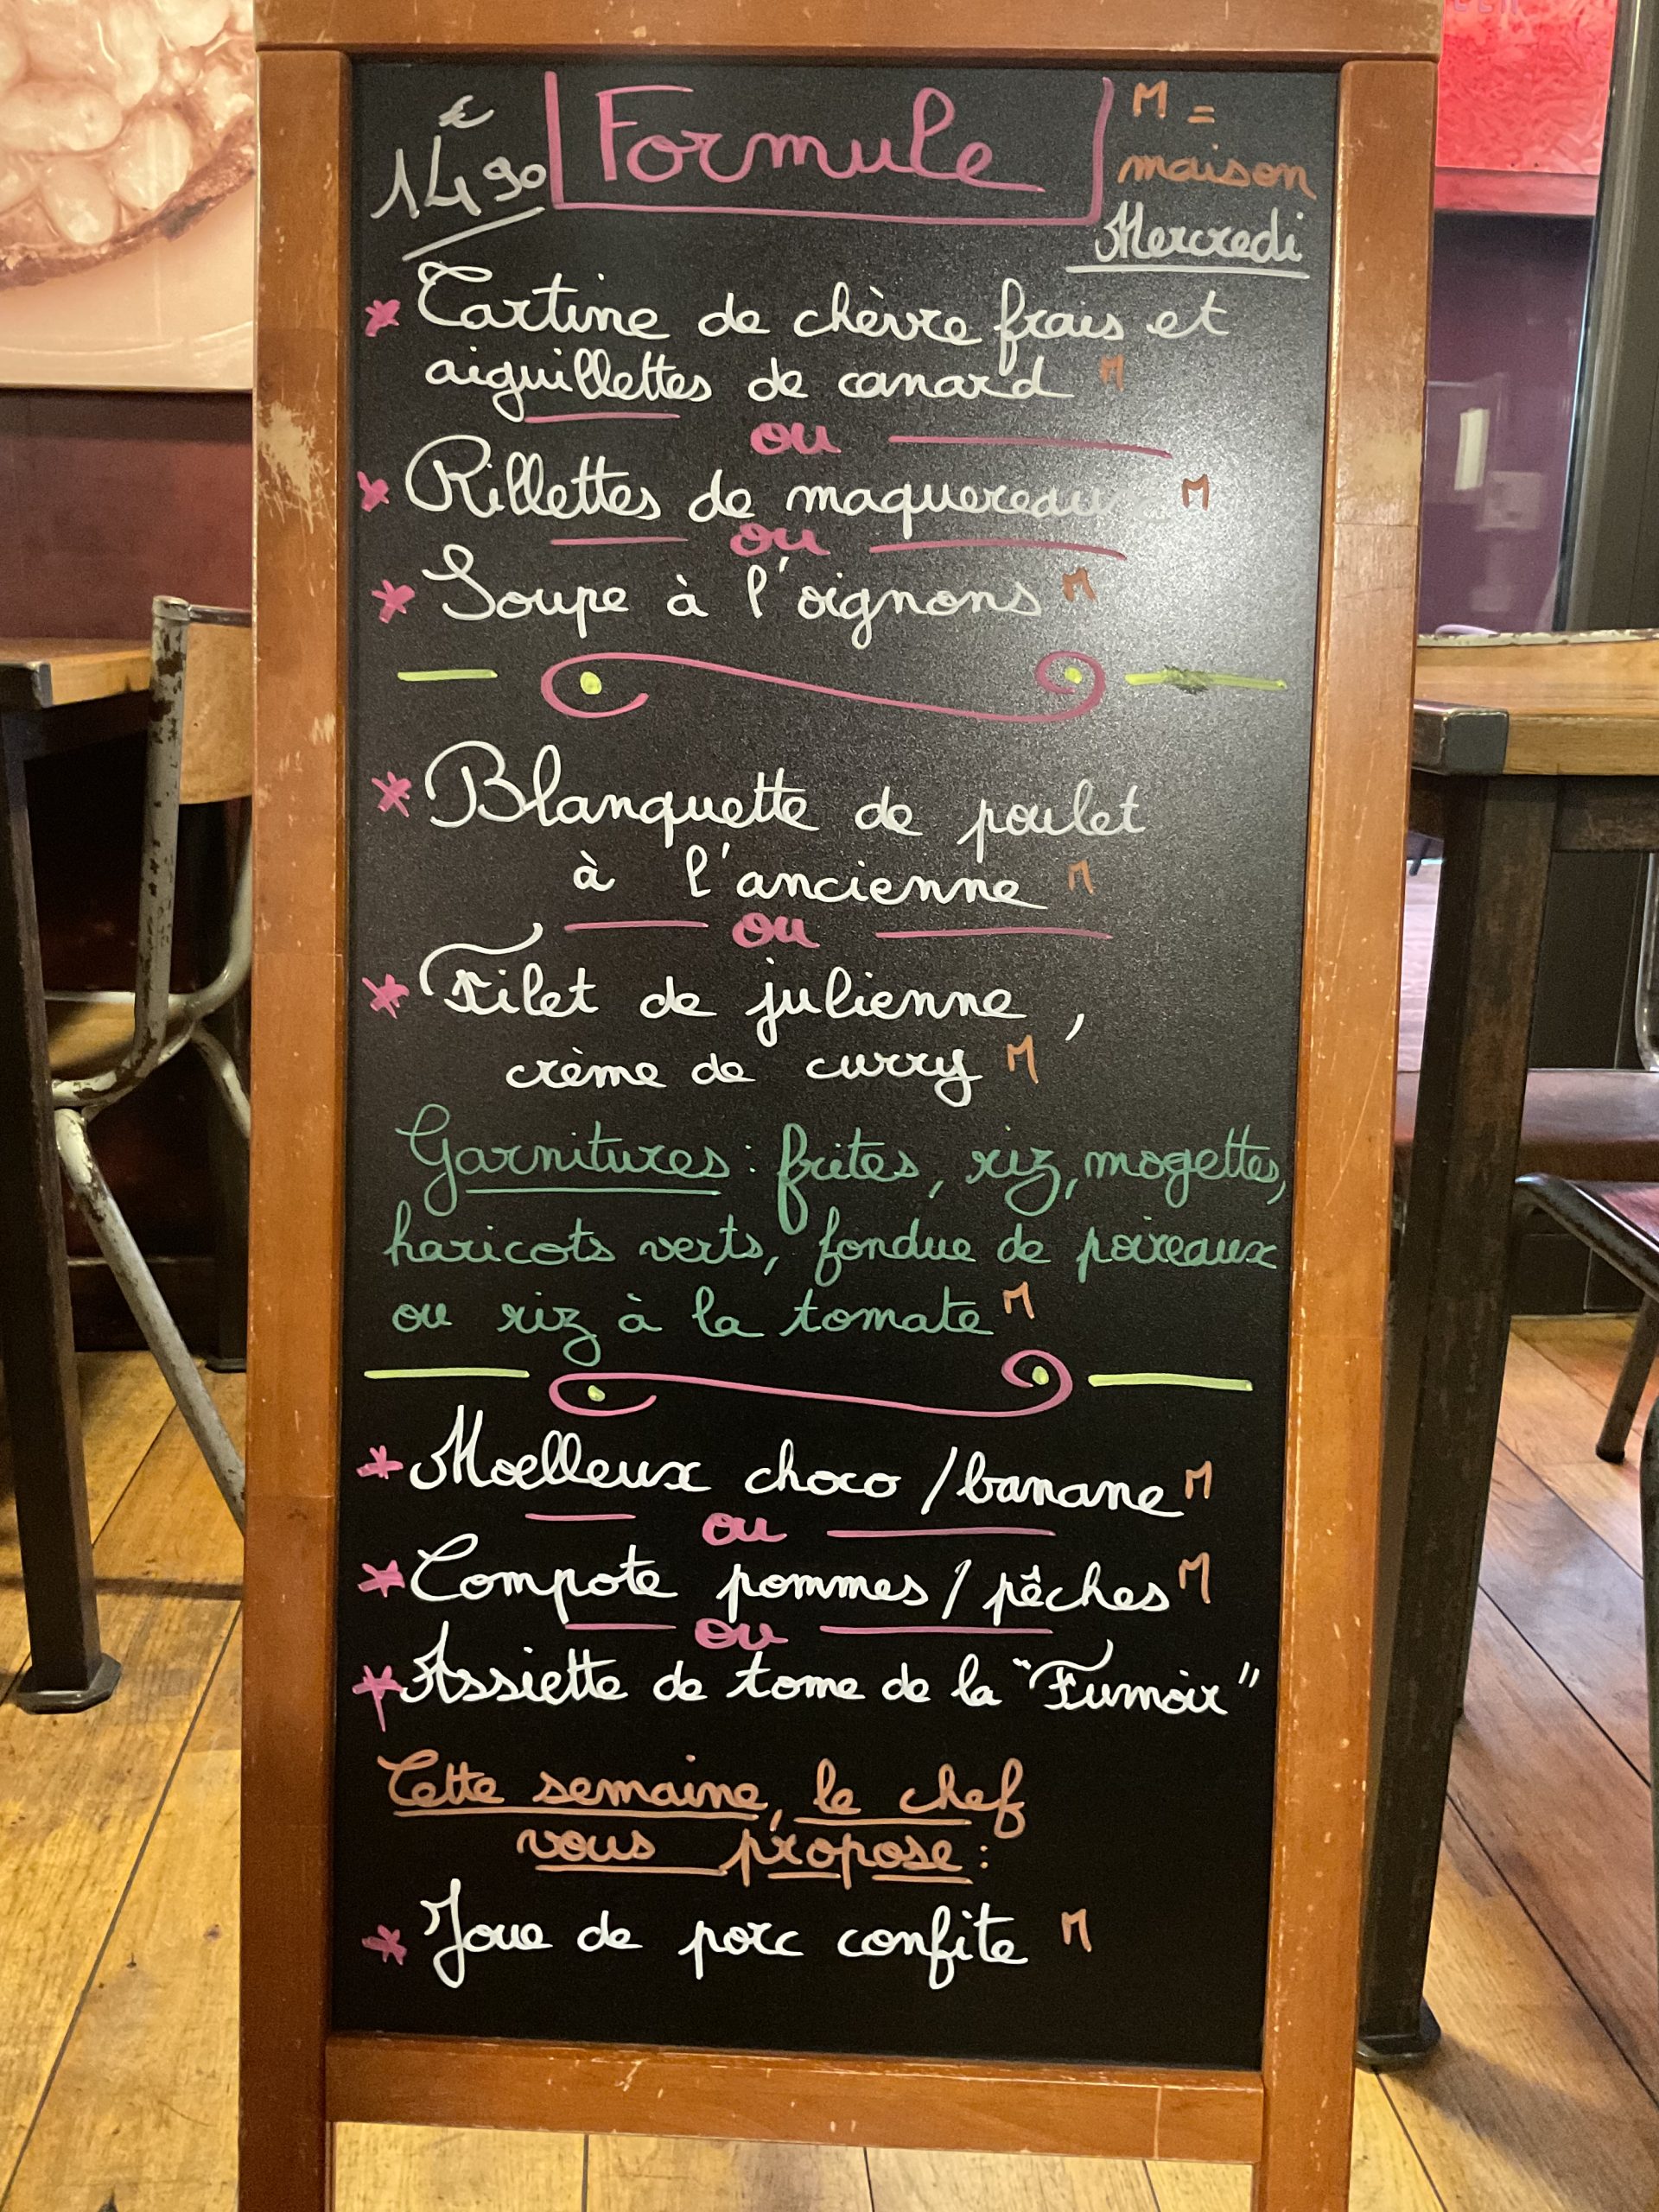 €
14,90
Formule
M =
maison
Mercredi
* Tartine de chèvre frais et
aiguillettes de canard M
ou
* Rillettes de maquereaux M
ou
* Soupe à l'oignons M
* Blanquette de poulet
à l'ancienne M
ou
* Filet de julienne,
crème de curry M
Garnitures : frites, riz, mogettes,
haricots verts, fondue de poireaux
ou riz à la tomate M
* Moelleux choco / banane M
ou
* Compote pommes / pêches M
ou
* Assiette de tome de la "Fumoir"
Cette semaine, le chef
vous propose :
* Joue de porc confite M